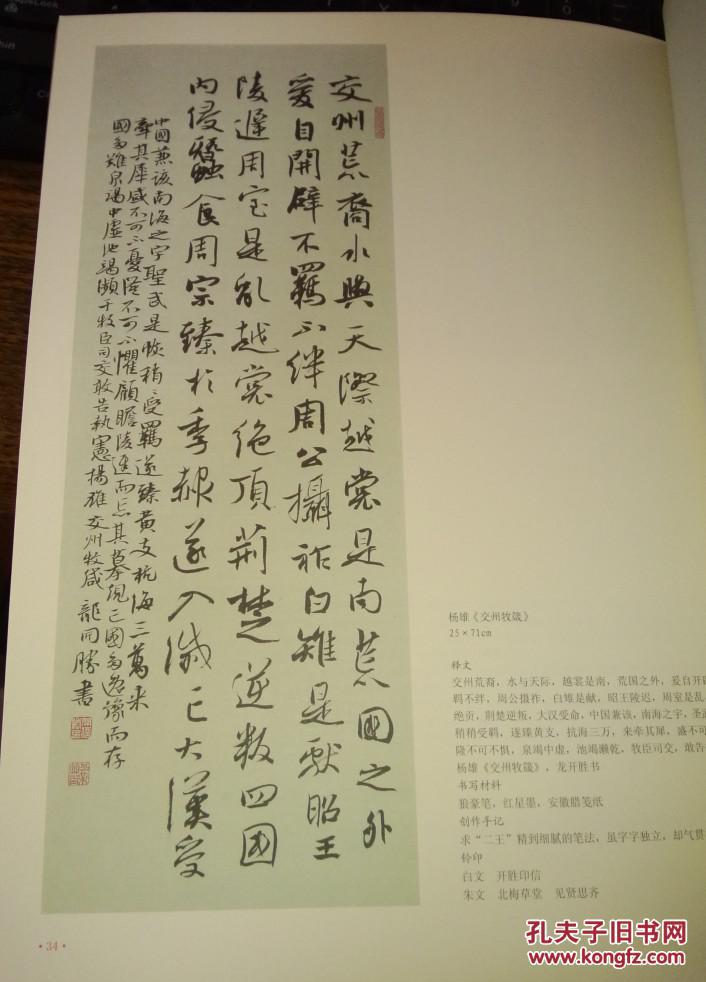 交州荒裔水與天際越裳是南荒國之外
爰自開辟不羈不绊周公攝祚白雉是獻昭王
陵遲周室是亂越裳絶頂荆楚逆叛四國
内侵蠶食周宗臻於季赧遂入滅亡大漢受
中國兼該南海之宇聖武是恢稍稍受羈遂臻黄支杭海三萬來
牽其犀盛不可不憂隆不可不懼顧瞻陵遲而忘其摹現亡國多逸豫而存
國多難泉竭中虚池竭瀕干牧臣司交敢告執憲揚雄交州牧箴 龍開勝書
杨雄《交州牧箴》
25×71cm
释文
交州荒裔，水与天际，越裳是南，荒国之外，爰自开辟
羁不绊，周公摄祚，白雉是献，昭王陵迟，周室是乱
绝贡，荆楚逆叛，大汉受命，中国兼该，南海之宇，圣武
稍稍受羁，遂臻黄支，抗海三万，来牵其犀，盛不可
隆不可不惧，泉竭中虚，池竭濑乾，牧臣司交，敢告
杨雄《交州牧箴》，龙开胜书
书写材料
狼豪笔，红星墨，安徽腊笺纸
创作手记
求“二王”精到细腻的笔法，虽字字独立，却气贯
钤印
白文 开胜印信
朱文 北梅草堂 见贤思齐
·34·
孔夫子旧书网
www.kongfz.com